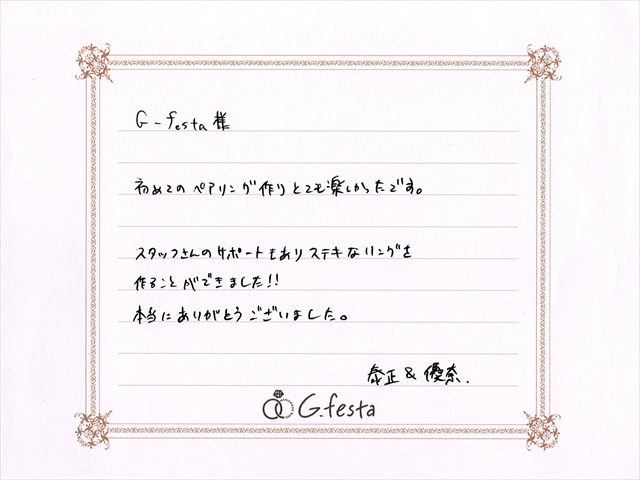 G-festa 様
初めての ペアリング 作り とても楽しかったです。
スタッフさんの サポートもあり ステキなリングを
作ることができました!!
本当に ありがとうございました。
泰正 & 優奈.
G.festa